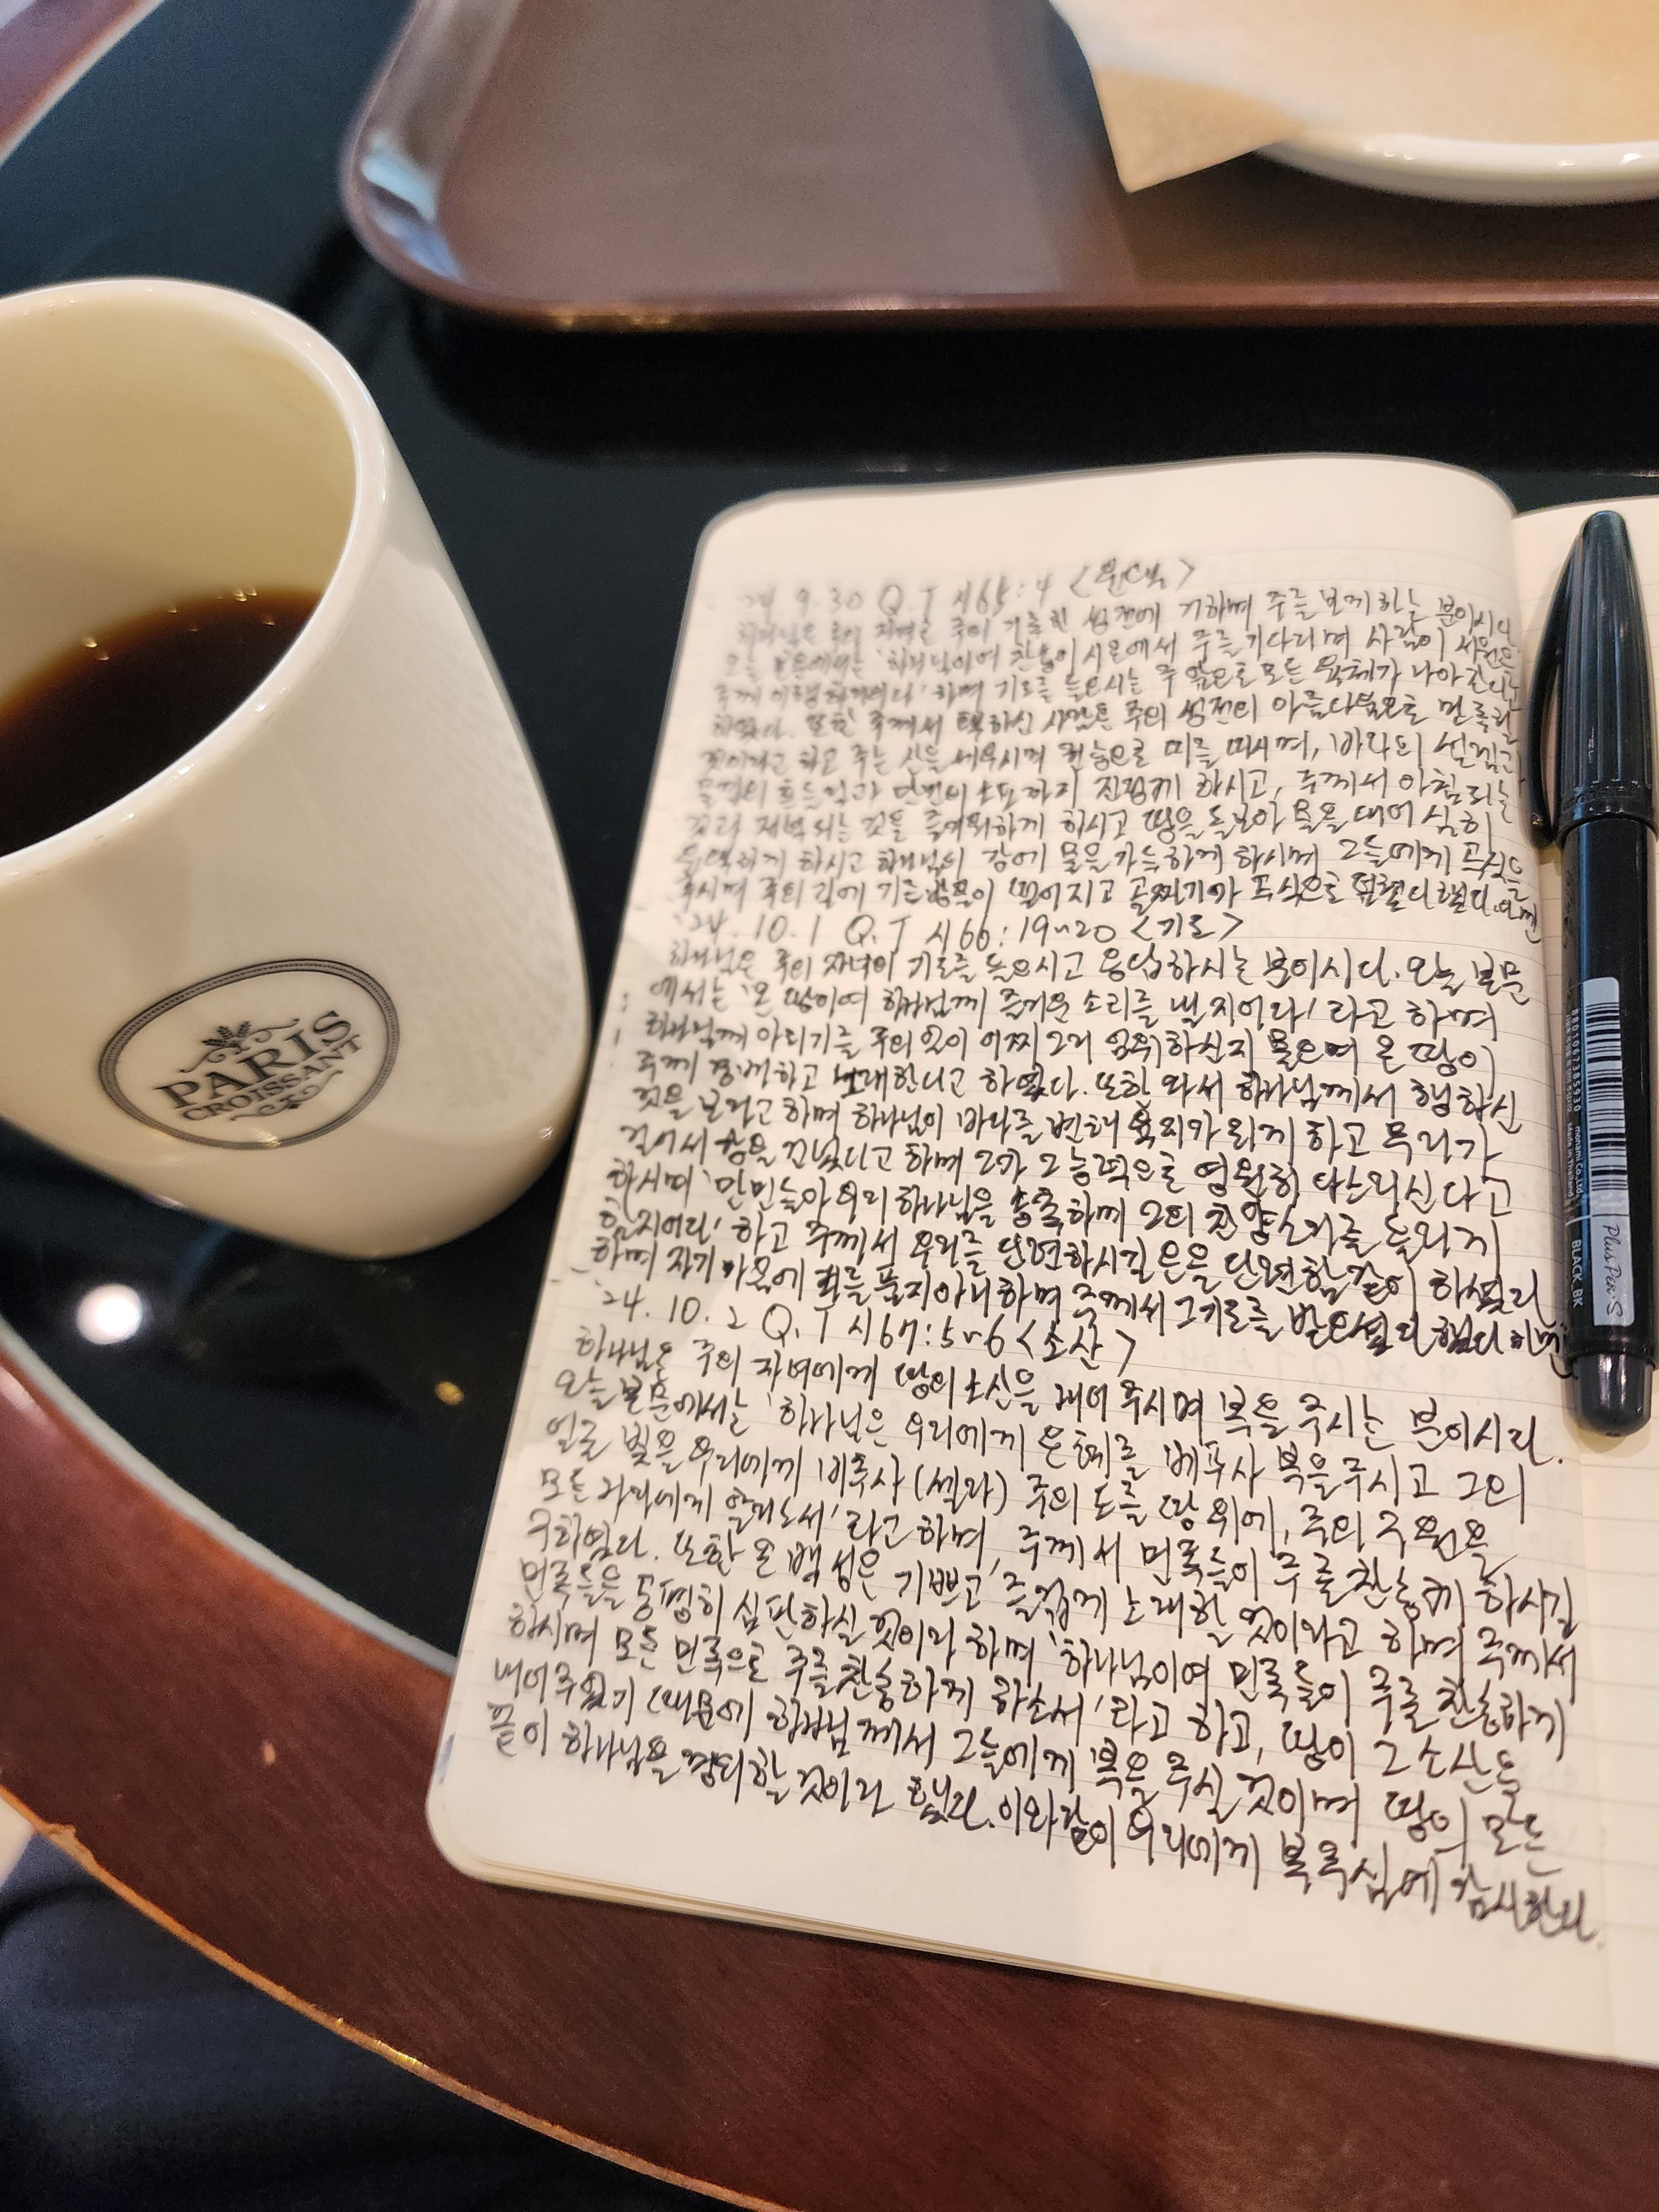 PARIS
CROISSANT
24. 9. 30 Q.T 시65:4
주의 가까운 성전에 거하며 주를 보게하는 분이시다
오늘 본문에서는 '하나님이여 찬송이 시온에서 주를 기다리며 사람이 서원을
주께 이행하리이다' 하며 기도를 들으시는 주 앞으로 모든 육체가 나아온다고
하였다. 또한 주께서 택하신 사람은 주의 성전의 아름다움으로 만족할
것이라고 하고 주는 산을 세우시며 권능으로 띠를 띠시며, 바다의 설렘과
물결의 흔들림과 만민의 소요까지 진정케 하시고, 주께서 아침되는
것과 저녁되는 것을 즐거워하게 하시고 땅을 돌보아 물을 대어 심히
윤택하게 하시고 하나님의 강에 물을 가득하게 하시며 그들에게 곡식을
주시며 주의 길에 기름방울이 떨어지고 골짜기가 곡식으로 덮였다 했다.
'24. 10. 1 Q.T 시66:19~20 <기도>
하나님은 주의 자녀의 기도를 들으시고 응답하시는 분이시다. 오늘 본문
에서는 '온 땅이여 하나님께 즐거운 소리를 낼지어다' 라고 하며
하나님께 아뢰기를 주의 일이 어찌 그리 엄위하신지 물으며 온 땅이
주께 경배하고 노래한다고 하였다. 또한 와서 하나님께서 행하신
것을 보라고 하며 하나님이 바다를 변해 육지가 되게 하고 무리가
걸어서 강을 건넜다고 하며 그가 그 능력으로 영원히 다스리신다고
하시며 '만민들아 우리 하나님을 송축하며 그의 찬양소리를 들리게
할지어다' 하고 주께서 우리를 단련하시길 은을 단련함같이 하셨다
하며 자기 마음에 죄를 품지아니하며 주께서 그기도를 받으셨다 했다
'24. 10. 2 Q.T 시67:5~6 <소산>
하나님은 주의 자녀에게 땅의 소산을 내어 주시며 복을 주시는 분이시다.
오늘 본문에서는 '하나님은 우리에게 은혜를 베푸사 복을 주시고 그의
얼굴 빛을 우리에게 비추사 (셀라) 주의 도를 땅 위에, 주의 구원을
모든 나라에게 알리소서' 라고 하며, 주께서 민족들이 주를 찬송케 하시길
구하였다. 또한 온 백성은 기쁘고 즐겁게 노래할 것이라고 하며 주께서
민족들을 공평히 심판하실 것이라 하며 '하나님이여 민족들이 주를 찬송하게
하시며 모든 민족으로 주를 찬송하게 하소서' 라고 하고, 땅이 그 소산을
내어주었기 때문에 하나님께서 그들에게 복을 주실 것이며 땅의 모든
끝이 하나님을 경외할 것이라 했다. 이와같이 우리에게 복주심에 감사한다.
8801067385930
monami Co.,Ltd.
Made in Thailand
BLACK BK
Plus Pen S